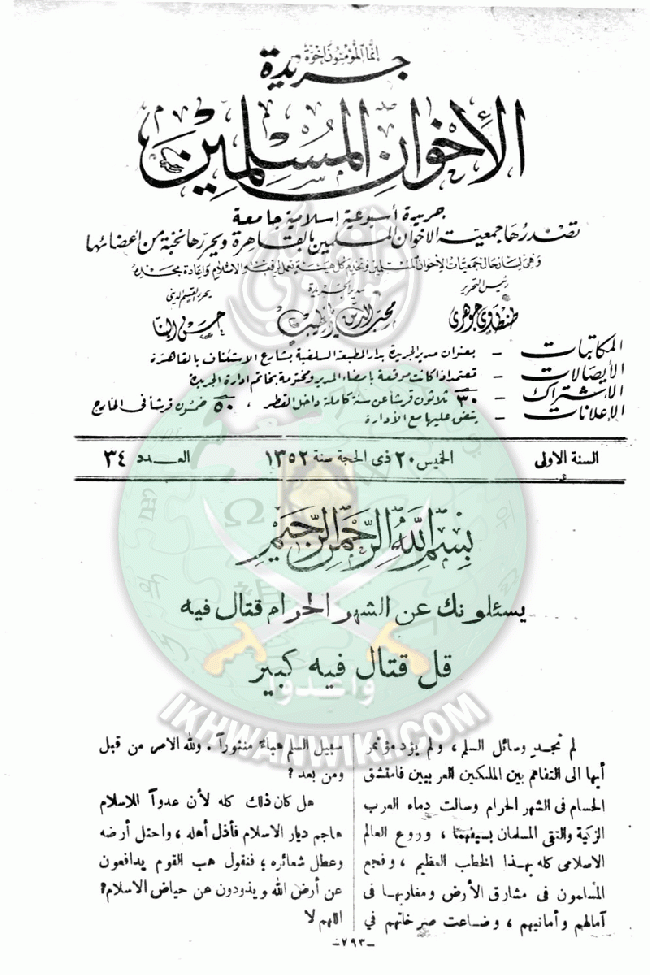 إنما المؤمنون إخوة
جريدة
الإخوان المسلمين
جريدة أسبوعية إسلامية جامعة
تصدرها جمعية الاخوان المسلمين بالقاهرة ويحررها نخبة من أعضائها
رئيس التحرير
مدير الجريدة
محرر القسم الديني
طنطاوي جوهري
محب الدين الخطيب
حسن البنا
المكاتبات - بعنوان مدير الجريدة بدار المطبعة السلفية بشارع الاستئناف بالقاهرة
الإيصالات - تعتمد اذا كانت مرقعة بامضاء المدير ومختومة بخاتم ادارة الجريدة
الاشتراك - ٣٠ ثلاثون قرشا عن سنة كاملة داخل القطر ، ٥٠ خمسون قرشا فى الخارج
الإعلانات - يتفق عليها مع الادارة
السنة الاولى
الخميس ٢٠ ذى الحجة سنة ١٣٥٢
العـدد ٣٤
بسم الله الرحمن الرحيم
يسئلونك عن الشهر الحرام قتال فيه
قل قتال فيه كبير
وأعدوا
IKHWANWIKI.COM
لم تجد وسائل السلم ، ولم يؤد مؤتمر
أبها الى التفاهم بين الملكين العربيين فامتشق
الحسام فى الشهر الحرام وسالت دماء العرب
الزكية والتقى المسلمان بسيفيهما ، وروع العالم
الاسلامى كله بهذا الخطب العظيم ، وفجع
المسلمون فى مشارق الأرض ومغاربها فى
آمالهم وأمانيهم ، وضاعت صرخاتهم في
سبيل السلم هباءً منثوراً . ولله الامر من قبل
ومن بعد ؟
هل كان ذلك كله لأن عدواً للاسلام
هاجم ديار الاسلام فأذل أهله ، واحتل أرضه
وعطل شعائره ؛ فنقول هب القوم يدافعون
عن أرض الله ويذودون عن حياض الاسلام؟
اللهم لا
-٧٩٣-